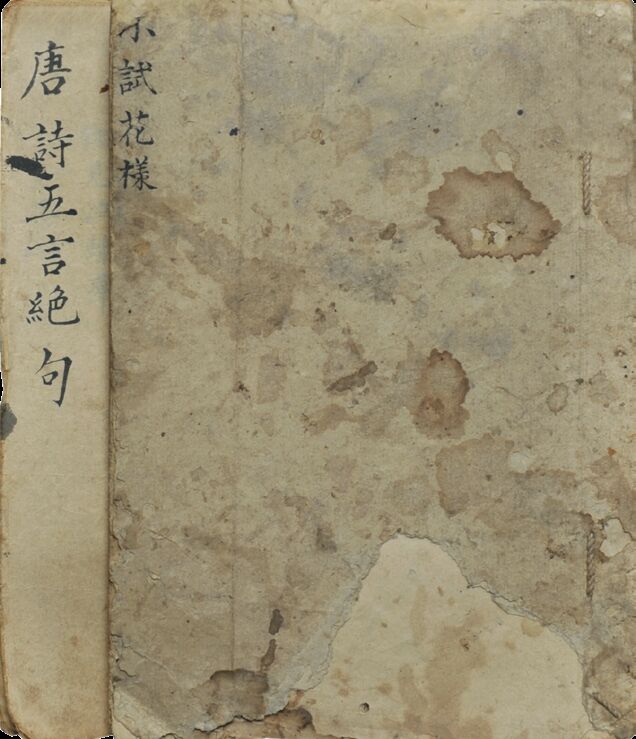 唐詩五言絶句
小試花樣